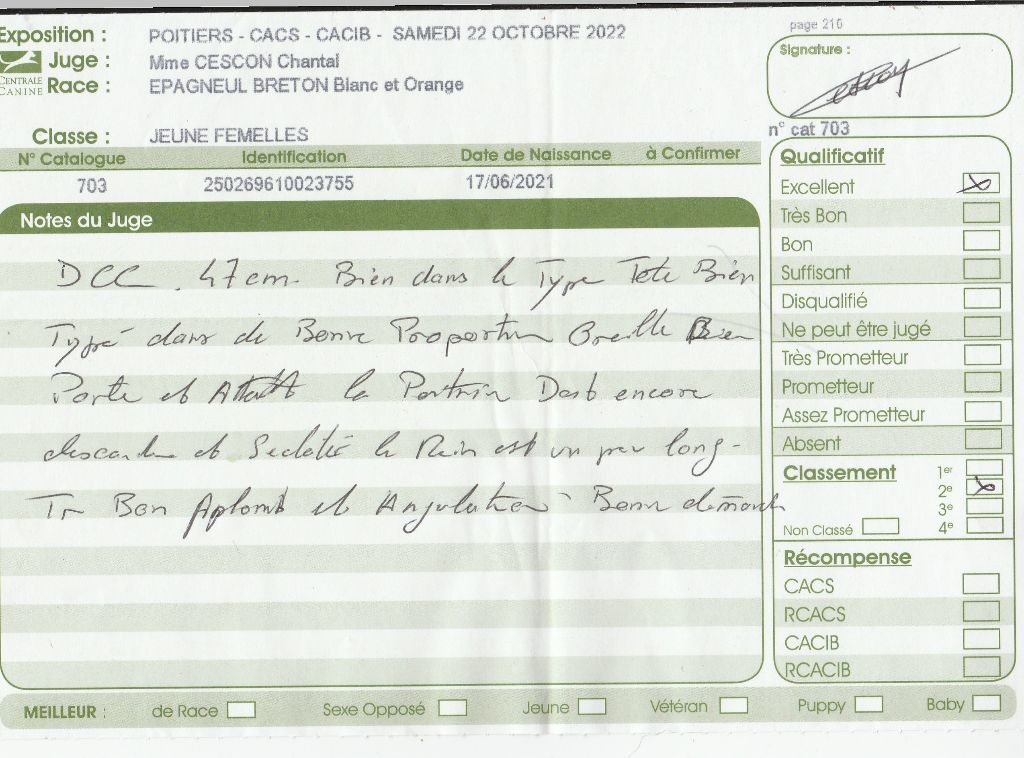 Exposition : POITIERS - CACS - CACIB - SAMEDI 22 OCTOBRE 2022
page 210
CENTRALE CANINE
Juge : Mme CESCON Chantal
Race : EPAGNEUL BRETON Blanc et Orange
Signature :
Classe : JEUNE FEMELLES
n° cat 703
N° Catalogue Identification Date de Naissance à Confirmer
703 250269610023755 17/06/2021
Notes du Juge
DCC. 47cm. Bien dans le Type Tete Bien
Typé dans de Bonne Proportion Oreille Bien
Porte et la Poitrin Doit encore
descendre et le Rein est un peu long -
Tr Bon Aplomb et Angulation - Bonne démarche
Qualificatif
Excellent
Très Bon
Bon
Suffisant
Disqualifié
Ne peut être jugé
Très Prometteur
Prometteur
Assez Prometteur
Absent
Classement 1er
2e
3e
Non Classé 4e
Récompense
CACS
RCACS
CACIB
RCACIB
MEILLEUR : de Race Sexe Opposé Jeune Vétéran Puppy Baby